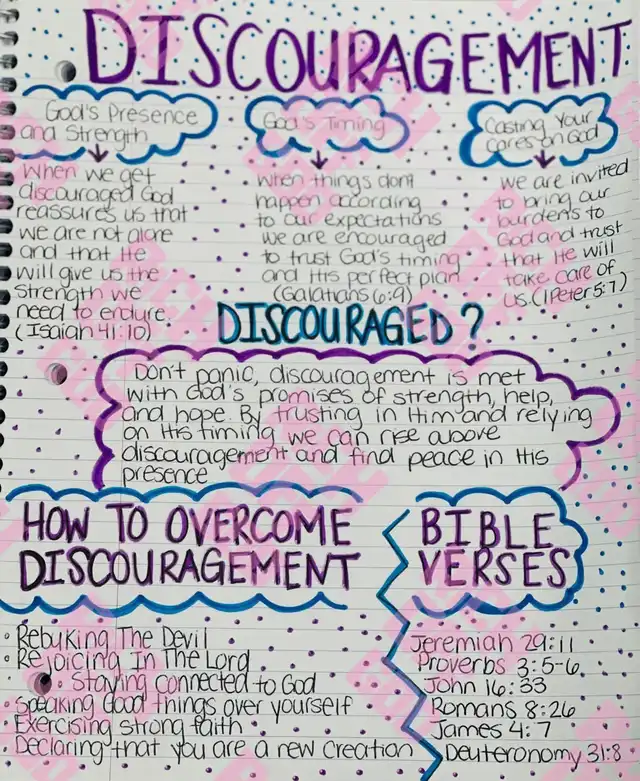 DISCOURAGEMENT
God's Presence
and Strength
When we get
discouraged God
reassures us that
we are not alone
and that He
will give us the
strength we
need to endure.
(Isaiah 41:10)
God's Timing
when things dont
happen according
to our expectations
we are encouraged
to trust God's timing
and His perfect plan
(Galatians 6:9)
Casting Your
cares on God
we are invited
to bring our
burdens to
God and trust
that He will
take care of
us. (1 Peter 5:7)
DISCOURAGED?
Don't panic, discouragement is met
with God's promises of strength, help,
and hope. By trusting in Him and relying
on His timing we can rise above
discouragement and find peace in His
presence
HOW TO OVERCOME
DISCOURAGEMENT
• Rebuking The Devil
• Rejoicing In The Lord
• Staying connected to God
• Speaking Good things over yourself
• Exercising strong faith
• Declaring that you are a new Creation
BIBLE
VERSES
Jeremiah 29:11
Proverbs 3:5-6
John 16:33
Romans 8:26
James 4:7
Deuteronomy 31:8